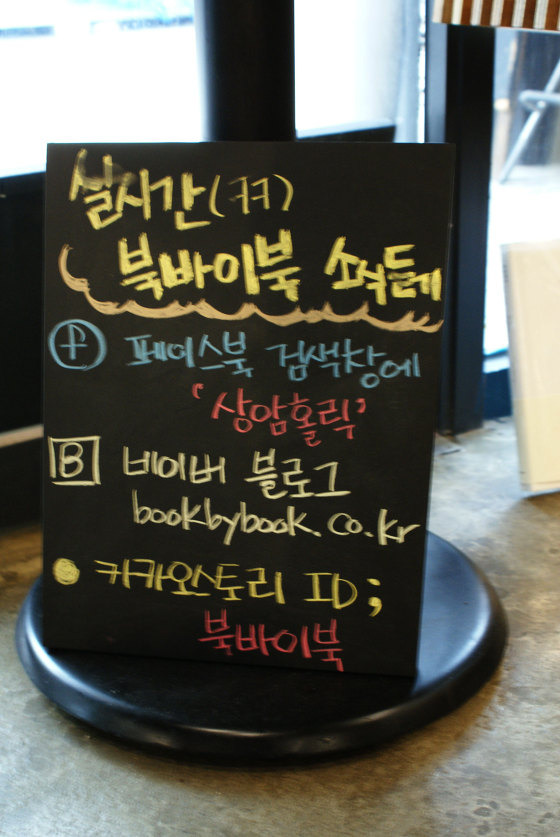 실시간(ㅋㅋ)
북바이북 소식들께
f 페이스북 검색창에
'상암홀릭'
B 네이버 블로그
bookbybook.co.kr
카카오스토리 ID;
북바이북